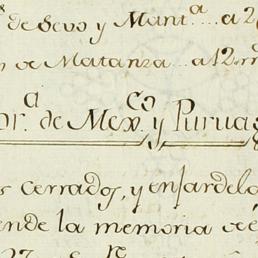 de Sevo y Mant.ª ... a 2
de Matanza ... a 12 rr
or.ª de Mex.co y Purua
s cerrados, y enfardela
ende la memoria